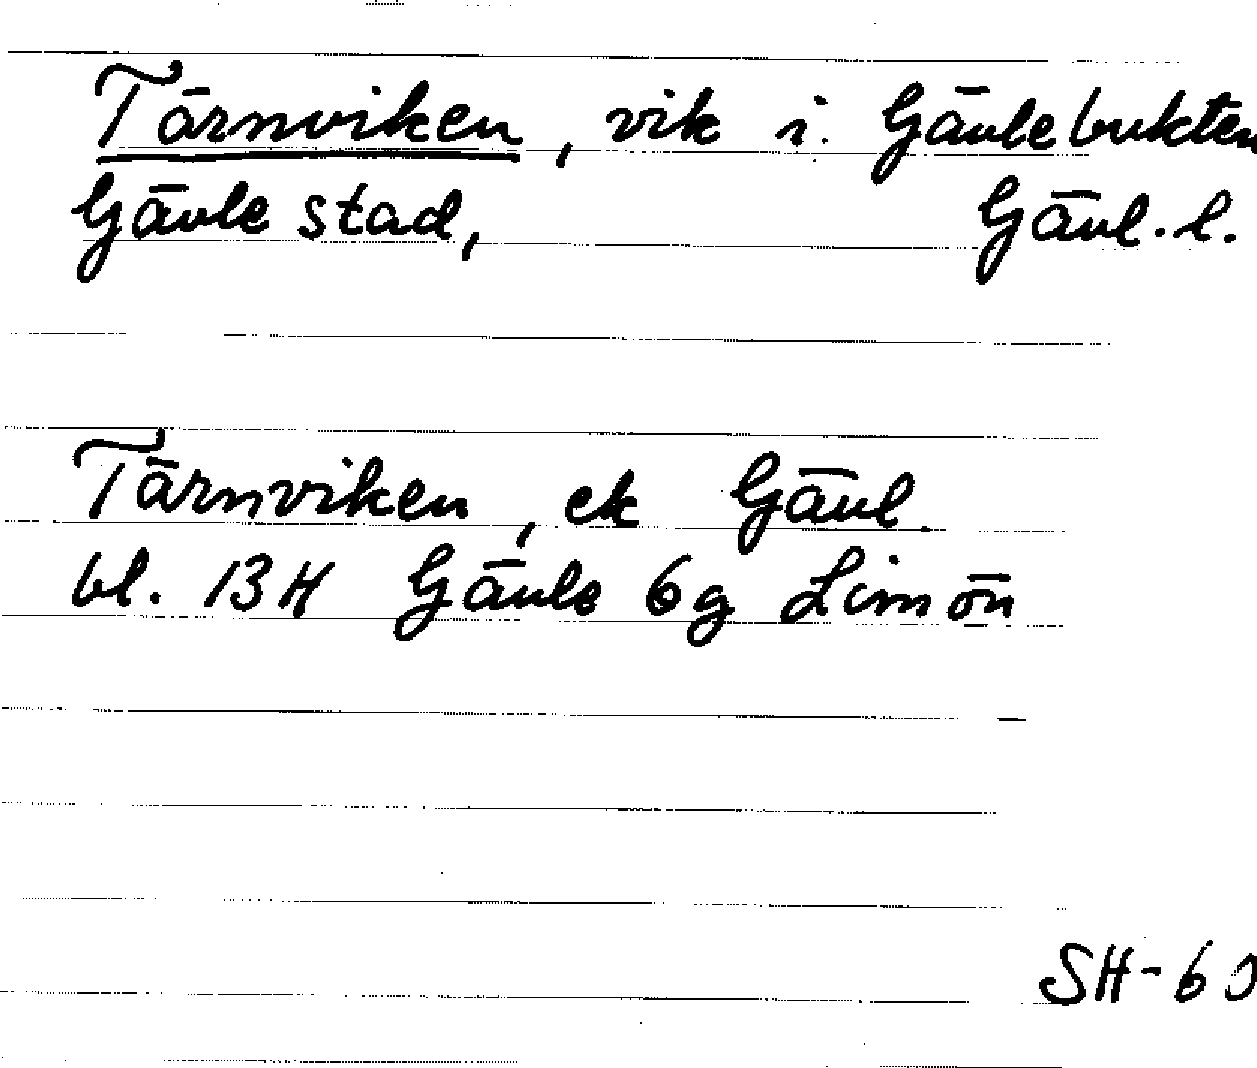 Tärnviken, vik i. Gävlebukten
Gävle stad, Gävl. l.
Tärnviken, ek Gävl.
bl. 13H Gävle 6g Limön